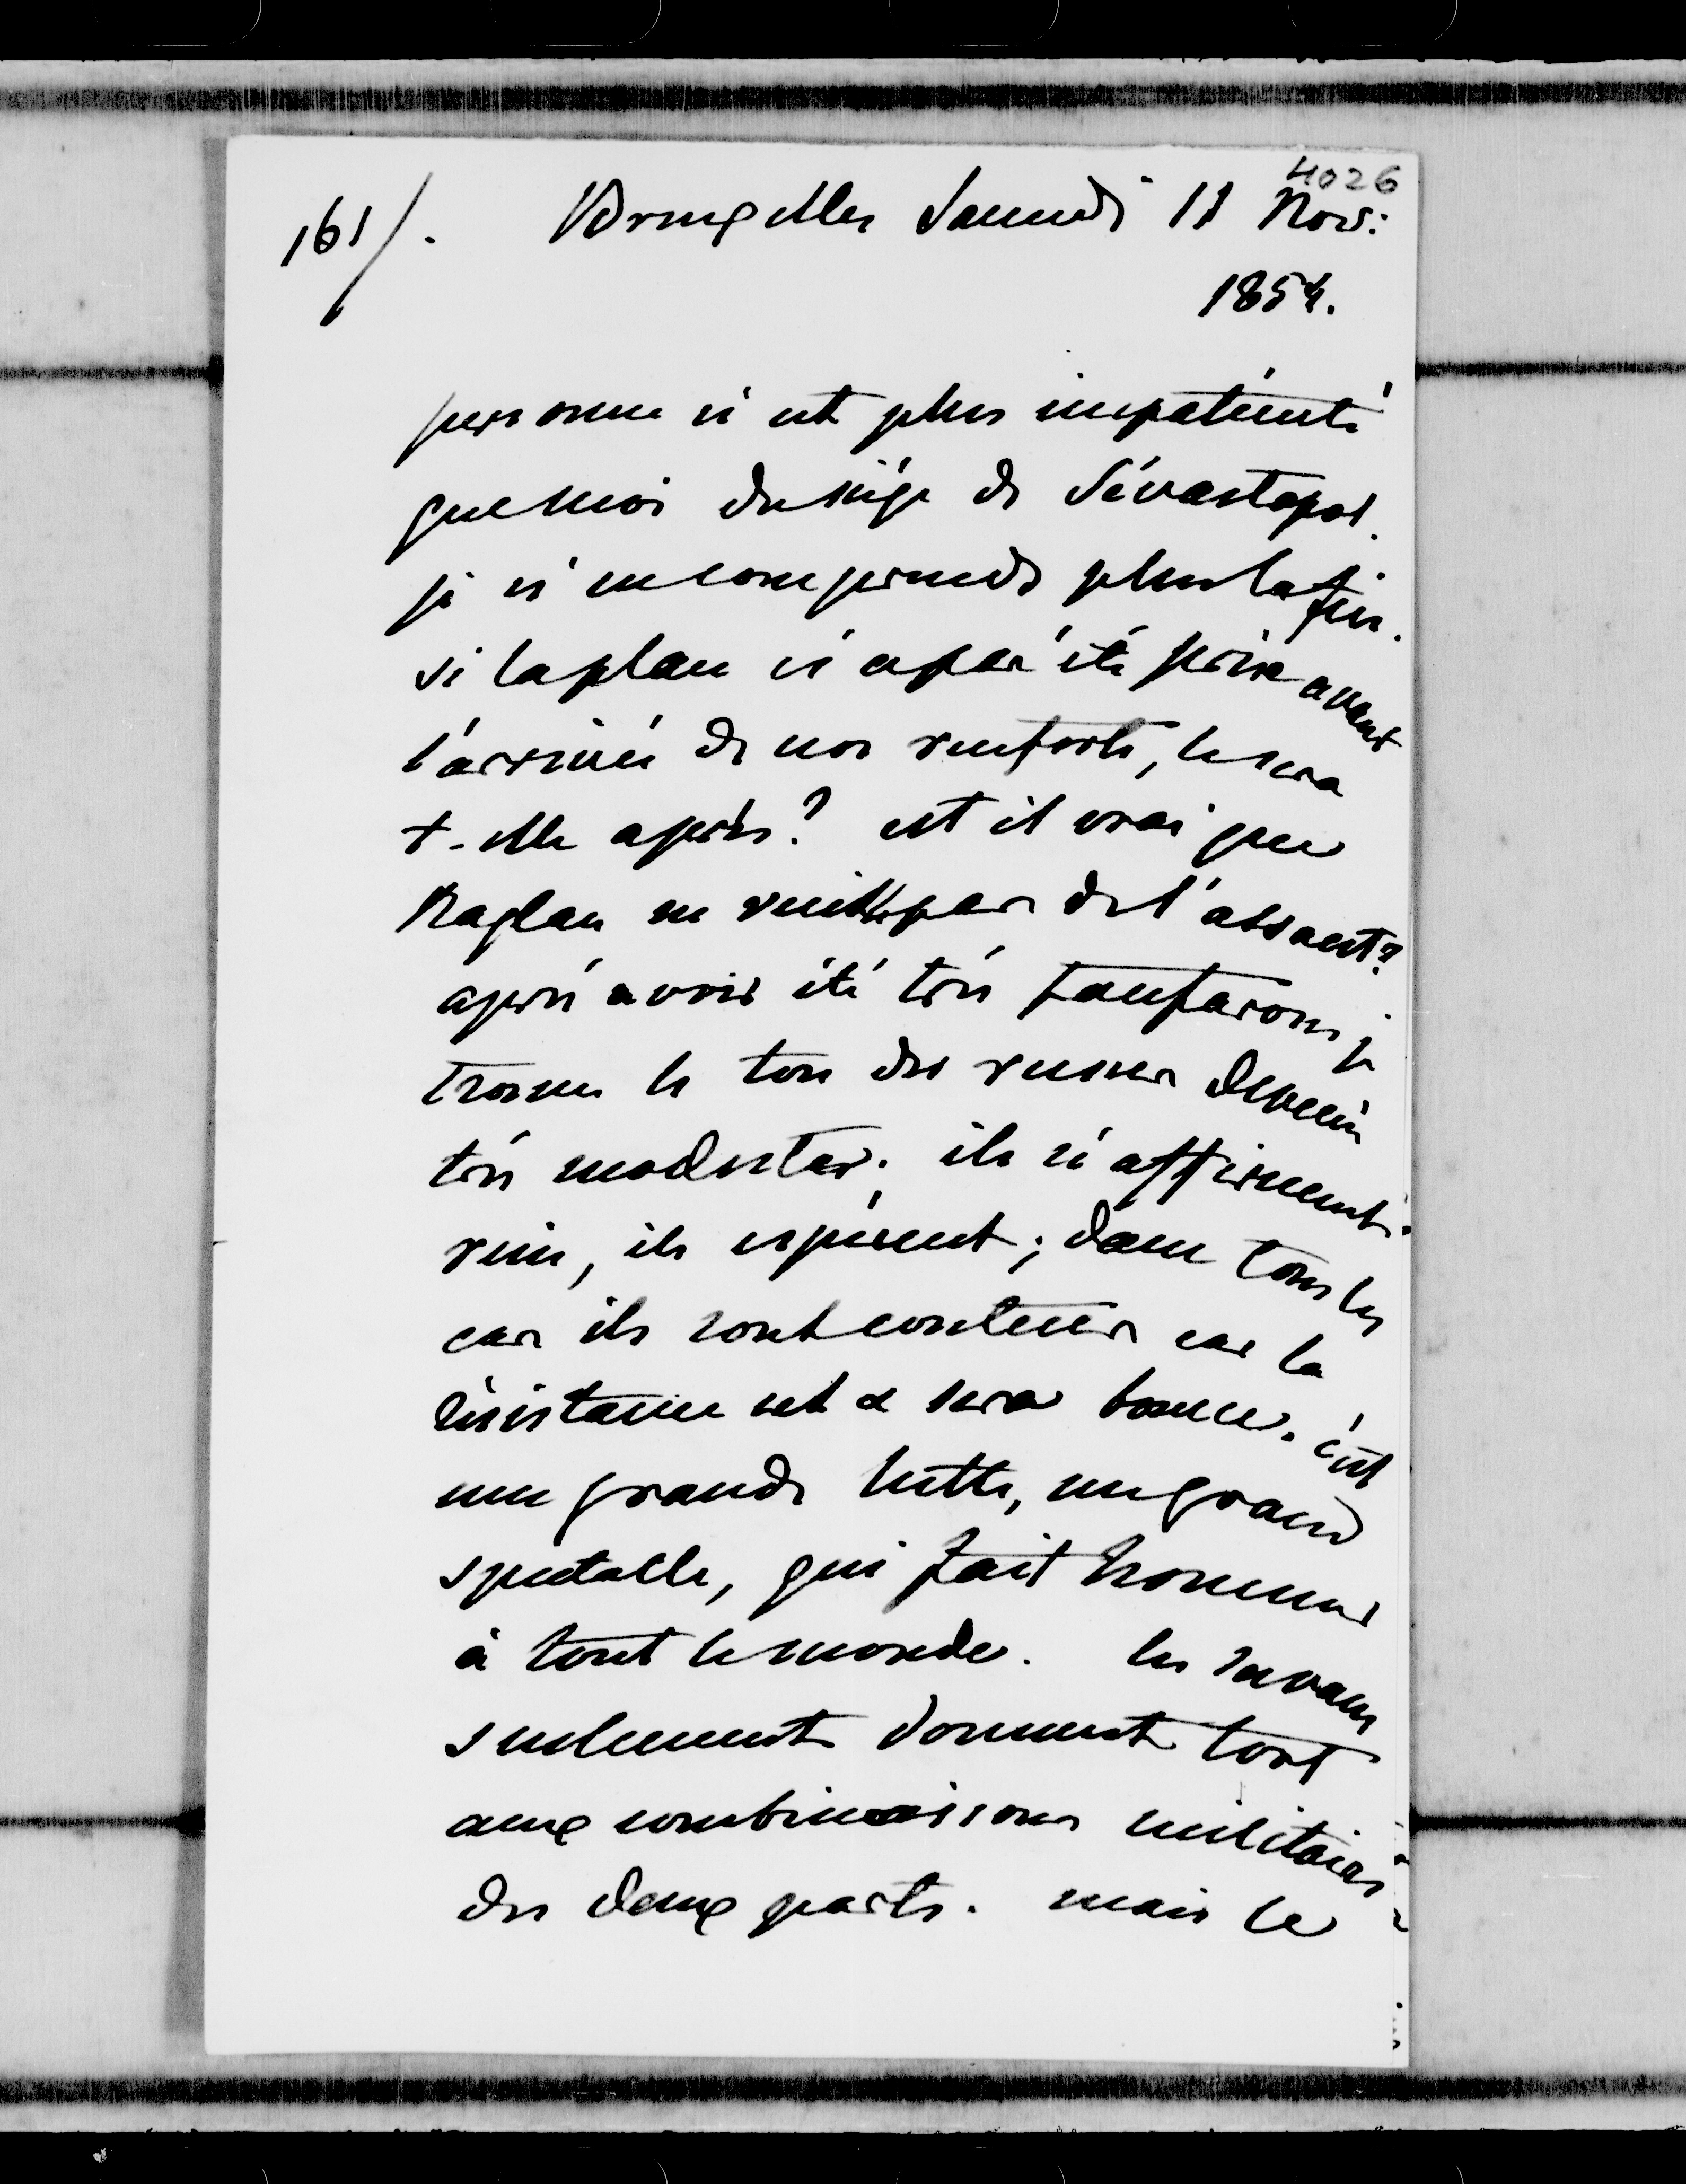 4026
161/. Bruxelles Samedi 11 Nov:
1854.
personne n'est plus impatienté
que moi du siège de Sévastopol.
je n'en comprends plus la fin.
si la place n'a pas été prise avant
l'arrivée de nos renforts, le sera
t-elle après? est il vrai que
Raglan ne veuille pas de l'assaut?
après avoir été très fanfarons je
trouve le ton des russes devenu
très modeste; ils n'affirment
rien, ils espèrent; dans tous les
cas ils sont contens car la
résistance est & sera bonne. c'est
une grande lutte, un grand
spectacle, qui fait honneur
à tout le monde. les savans
seulement donnent tort
aux combinaisons militaires
des deux parts. mais le